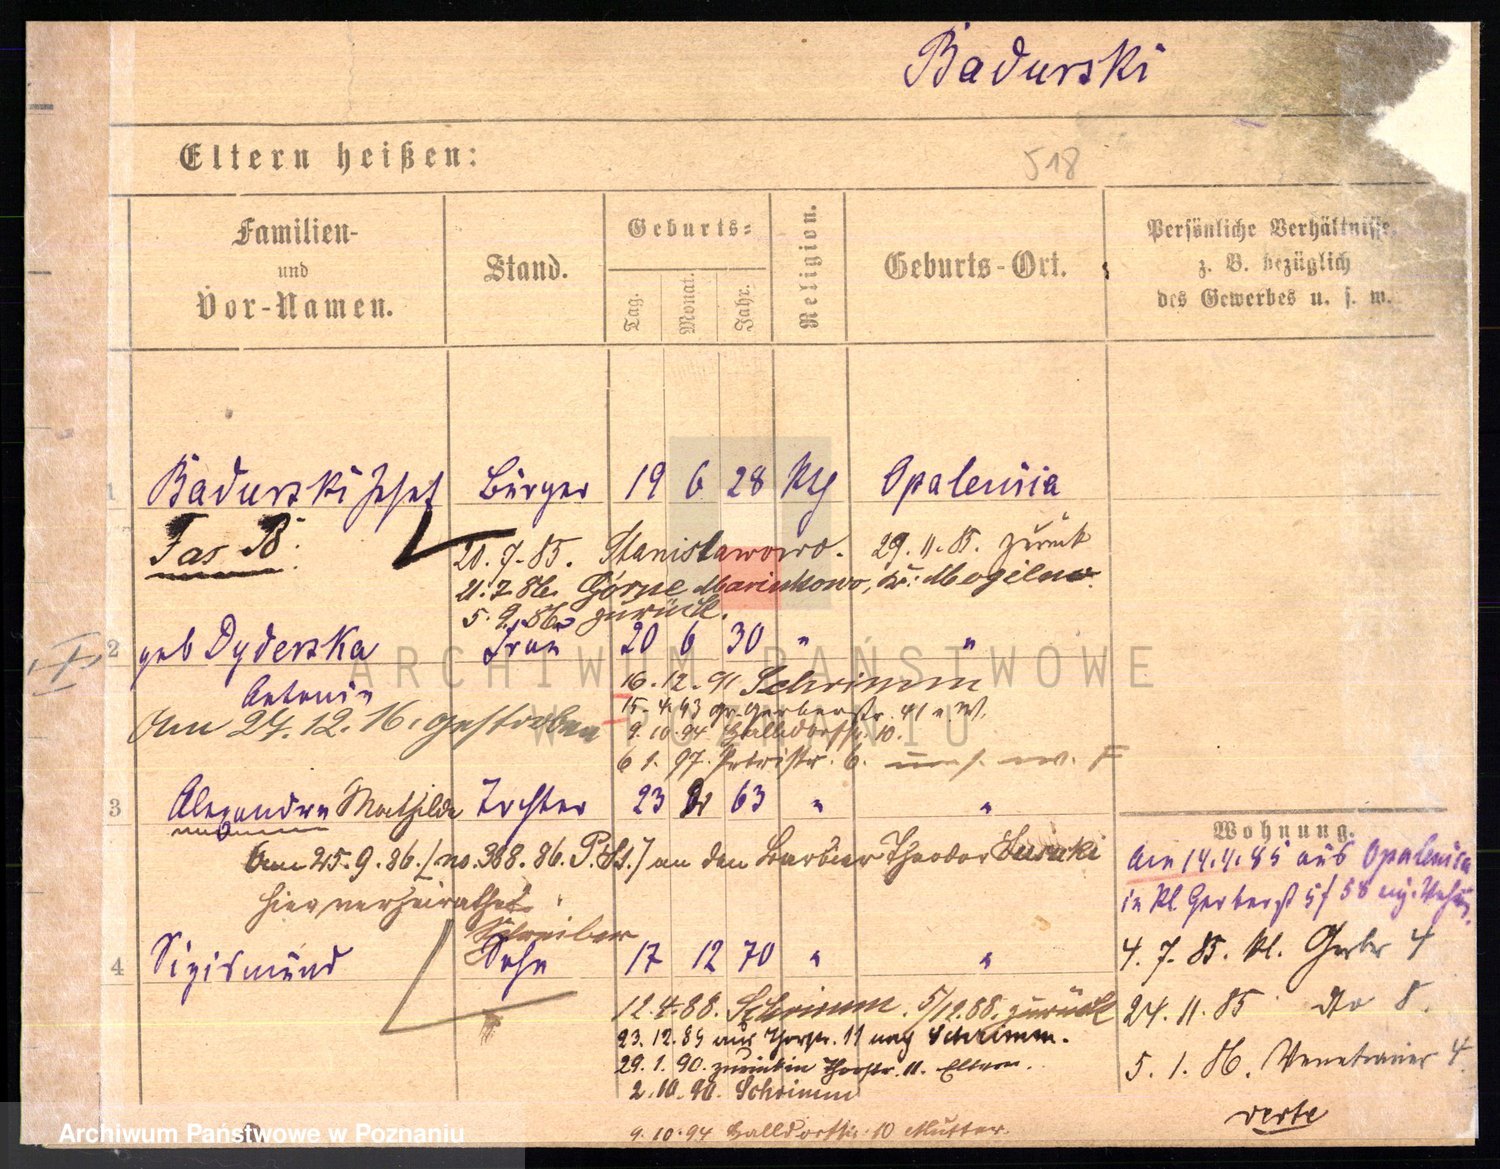 Badurski
Eltern heißen:
518
Familien-
und
Vor-Namen.
Stand.
Geburts-
Tag.
Monat.
Jahr.
Religion.
Geburts-Ort.
Persönliche Verhältnisse,
z. B. bezüglich
des Gewerbes u. s. w.
1 Badurski Josef Bürger 19 6 28 Kth Opalenica
Fas B.
20.7.85. Stanislawowo. 29.11.85. zurück
Górne Marinkowo, Kr: Mogilno.
zurück.
2 geb Dyderska Frau 20 6 30 " "
Antonie
16.12.91 Schrimm
Am 27.12.16. gestorben
15.4.93 gr. Gerberstr. 41 n. W.
9.10.94 Halldorfstr. 10.
6 1. 97. Petristr. 6.
3 Alexandra Mathilde Tochter 23 63 " "
Am 25.9.86. [no. 368.86. P.St.] an den Barbier Theodor
hier verheirathet.
Schreiber
4 Sigismund Sohn 17 12 70 " "
12.4.88. Schrimm. 5/12.88. zurück
23.12.89 aus Thorstr. 11 nach Schrimm.
29.1.90. zurück in Thorstr. 11. Eltern.
2.10.90. Schrimm
9.10.94 Halldorfstr. 10 Mutter.
Wohnung.
Am 14.4.85 aus Opalenica
in Kl. Gerberst
4.7.85. Kl. Gerber 4
24.11.85 do 8.
5.1.86. Venetianer 4.
verte
ARCHIWUM PAŃSTWOWE
W POZNANIU
Archiwum Państwowe w Poznaniu